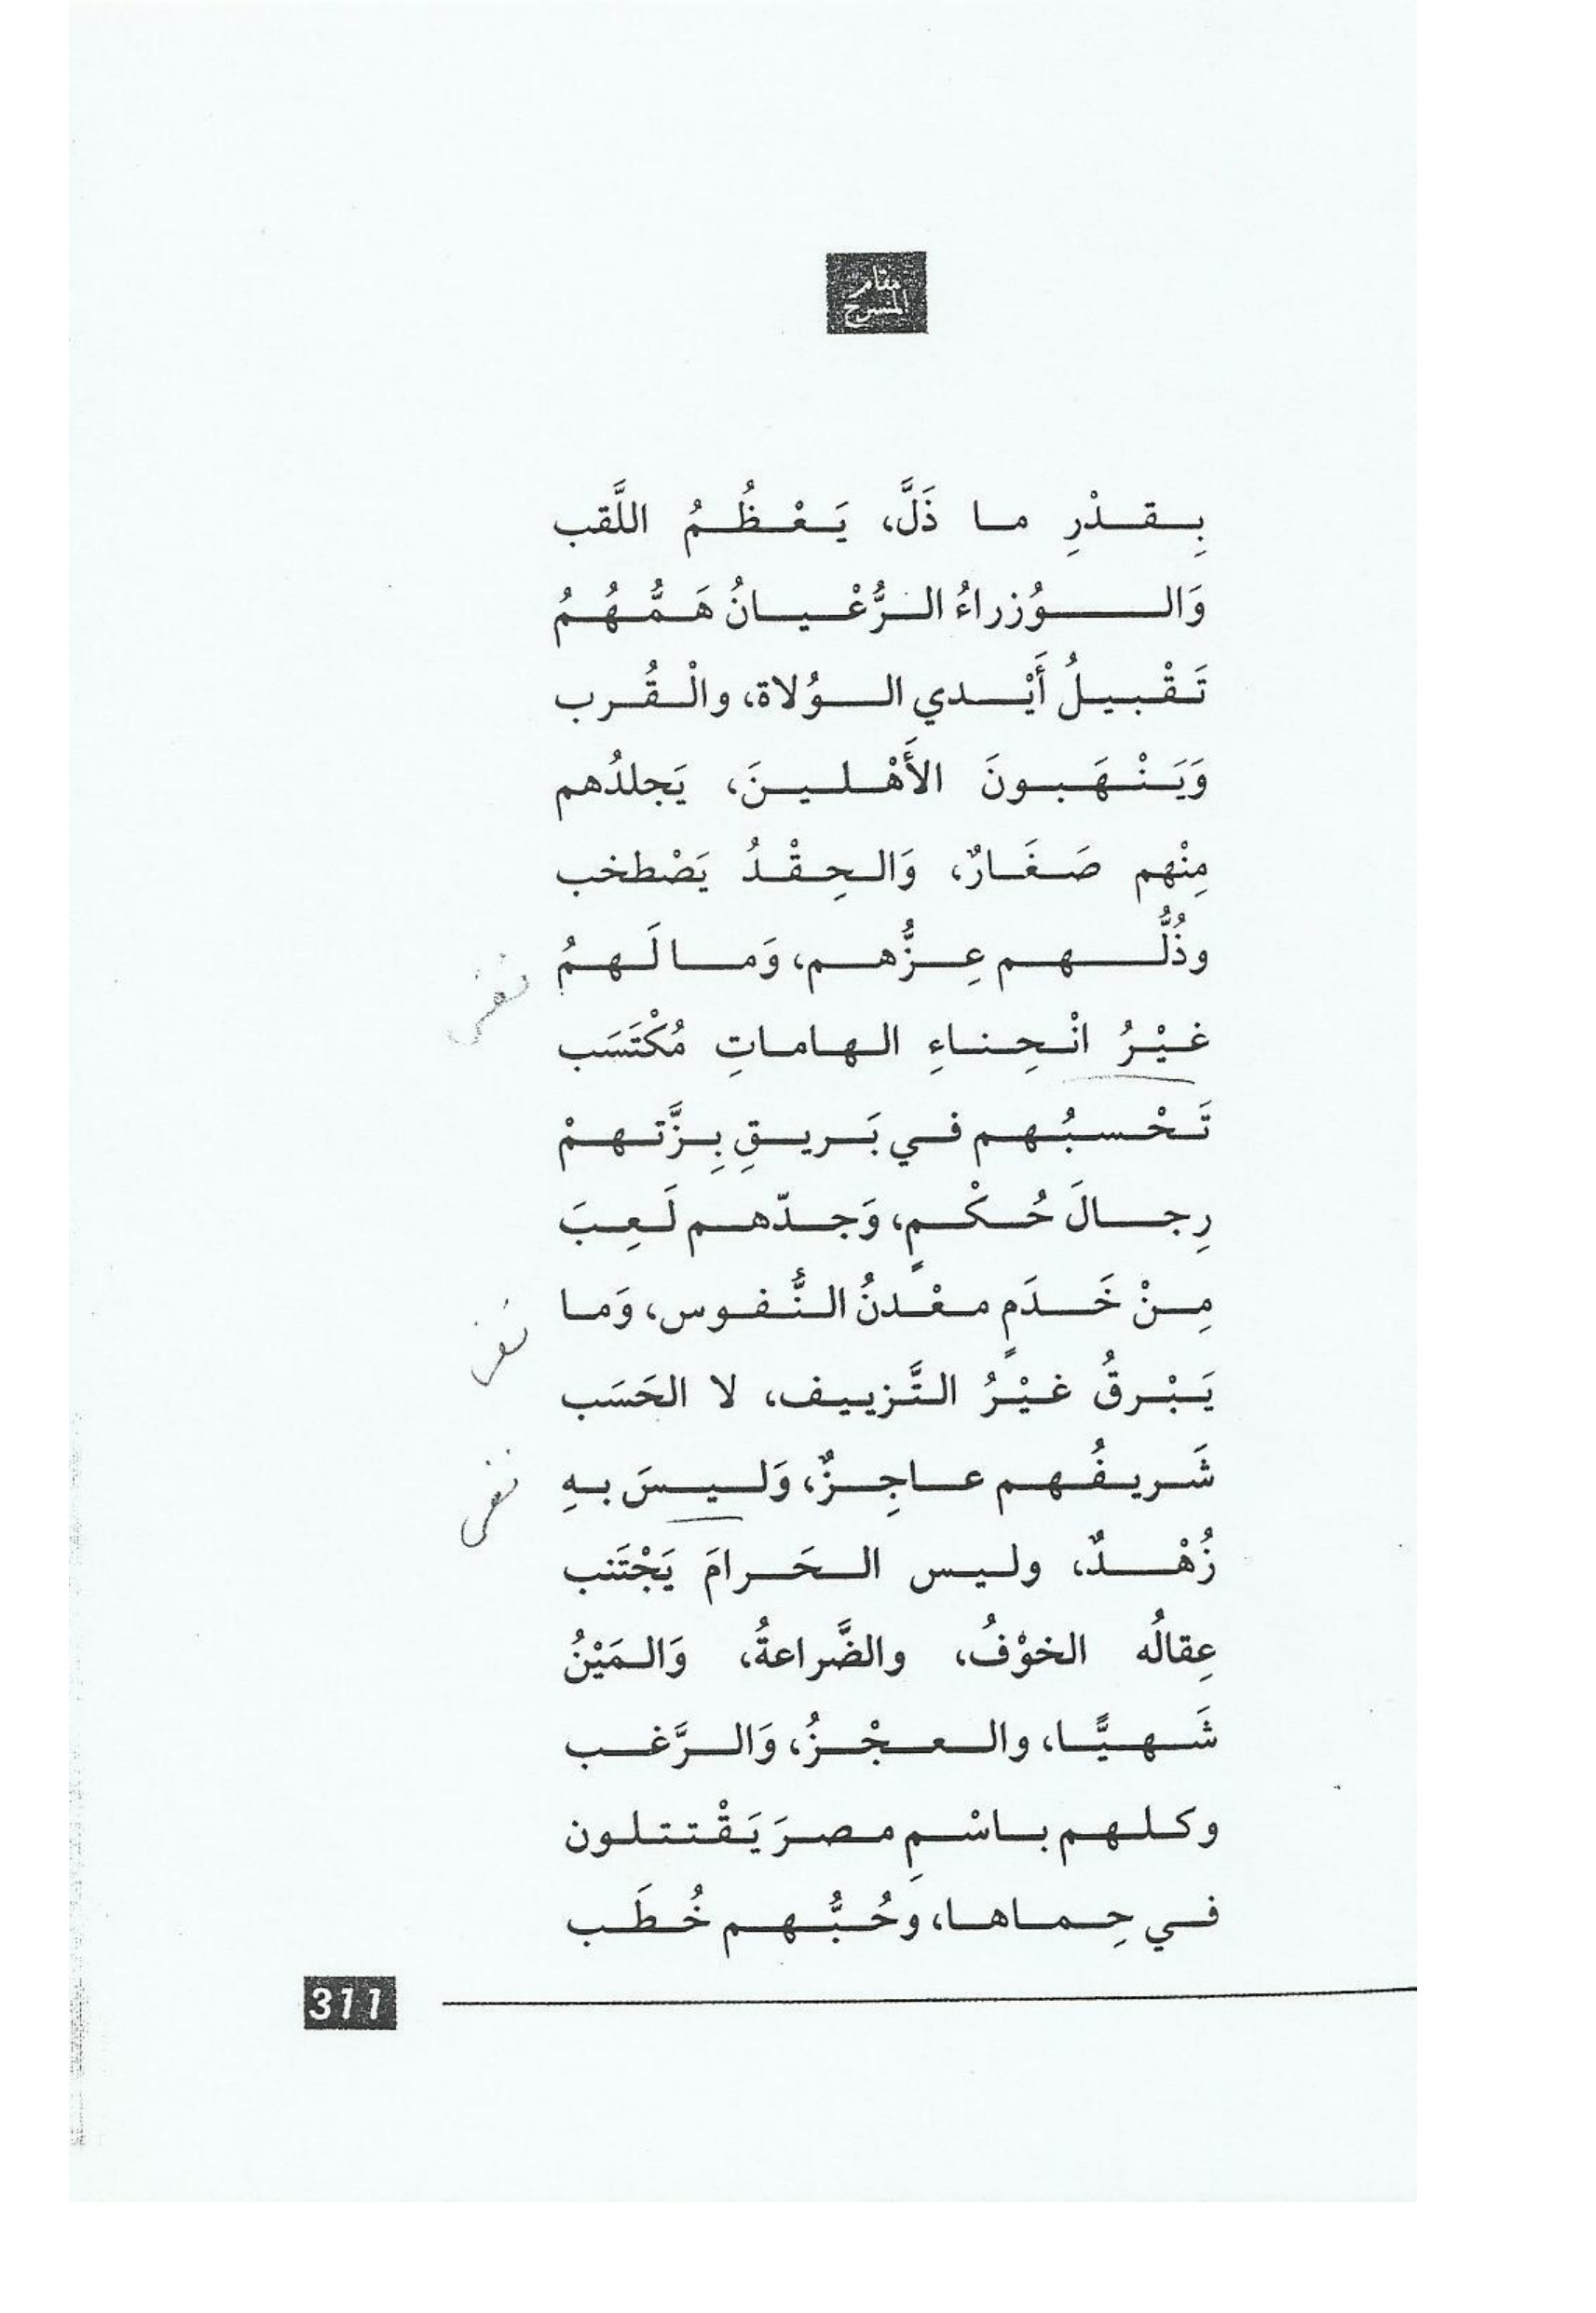 مقام
المنسرح
بِـقـدْرِ مـا ذَلَّ، يَـعْـظُـمُ اللَّقب
وَالـوُزراءُ الـرُّعْـيـانُ هَـمُّـهُـمُ
تَـقْـبـيـلُ أَيْـدي الـوُلاة، والْـقُـرب
وَيَـنْـهَـبـونَ الأَهْـلـيـنَ، يَجلدُهم
مِنْهم صَـغَـارٌ، وَالـحِـقْـدُ يَصْطخب
وذُلُّـهـم عِـزُّهـم، وَمـا لَـهـمُ
غـيْـرُ انْـحِـنـاءِ الـهـامـاتِ مُكْتَسَب
نفى
تَـحْـسـبُـهـم فـي بَـريـقِ بِـزَّتـهـمْ
رِجـالَ حُـكْـمٍ، وَجـدّهـم لَـعِـبَ
مِـنْ خَـدَمٍ مـعْـدنُ الـنُّـفـوس، وَمـا
نفى
يَـبْـرقُ غـيْـرُ الـتَّـزييـف، لا الحَسَب
شَـريـفُـهـم عـاجِـزٌ، وَلـيـسَ بـهِ
نفى
زُهْـدٌ، ولـيـس الـحَـرامَ يَجْتَنب
عِقالُه الخوْفُ، والضَّراعةُ، وَالـمَيْنُ
شَـهـيًّـا، والـعـجْـزُ، وَالـرَّغـب
وكـلـهـم بـاسْـمِ مـصـرَ يَـقْـتـتـلـون
فـي حِـمـاهـا، وحُـبُّـهـم خُـطَـب
311